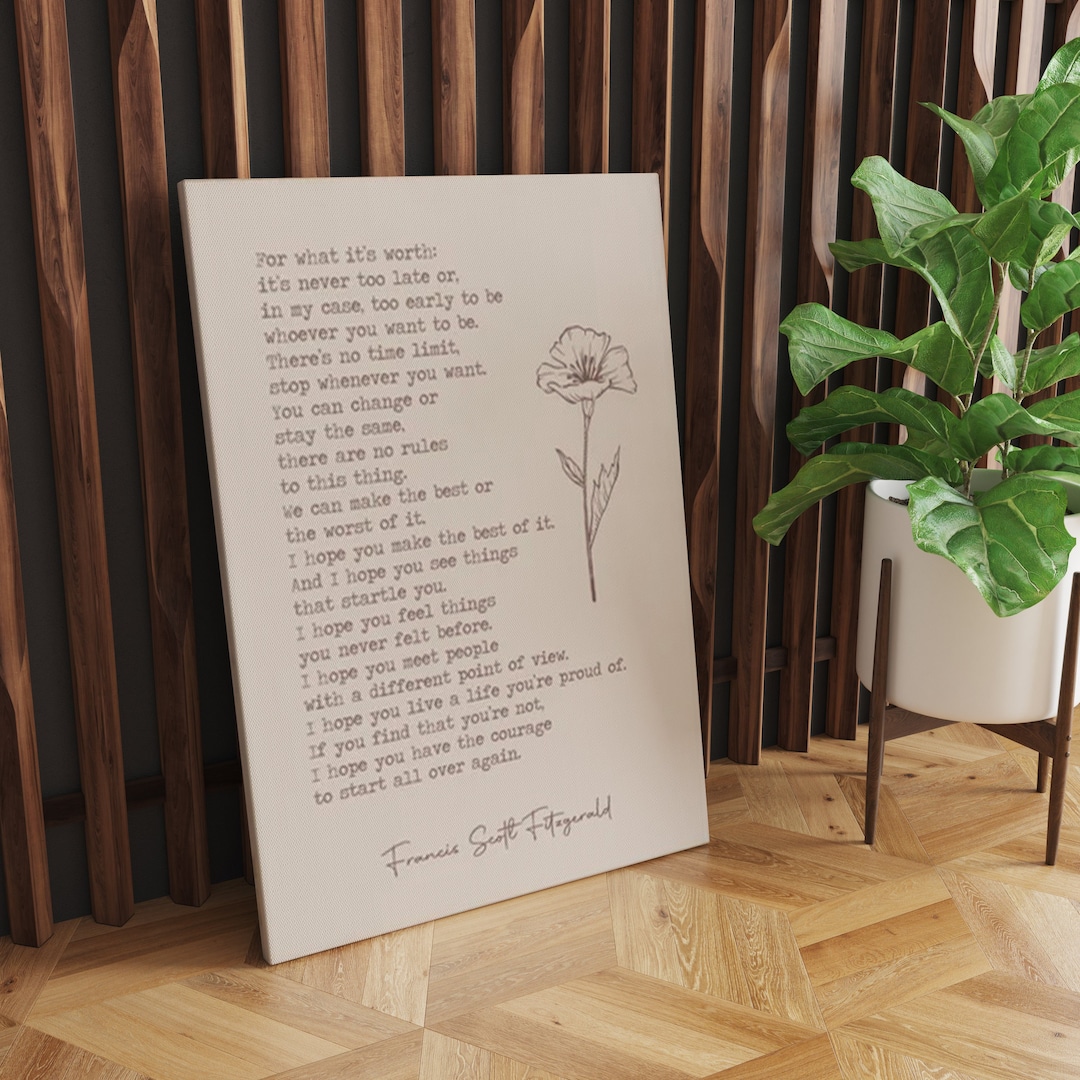 For what it's worth:
it's never too late or,
in my case, too early to be
whoever you want to be.
There's no time limit,
stop whenever you want.
You can change or
stay the same,
there are no rules
to this thing.
We can make the best or
the worst of it.
I hope you make the best of it.
And I hope you see things
that startle you.
I hope you feel things
you never felt before.
I hope you meet people
with a different point of view.
I hope you live a life you're proud of.
If you find that you're not,
I hope you have the courage
to start all over again.
Francis Scott Fitzgerald